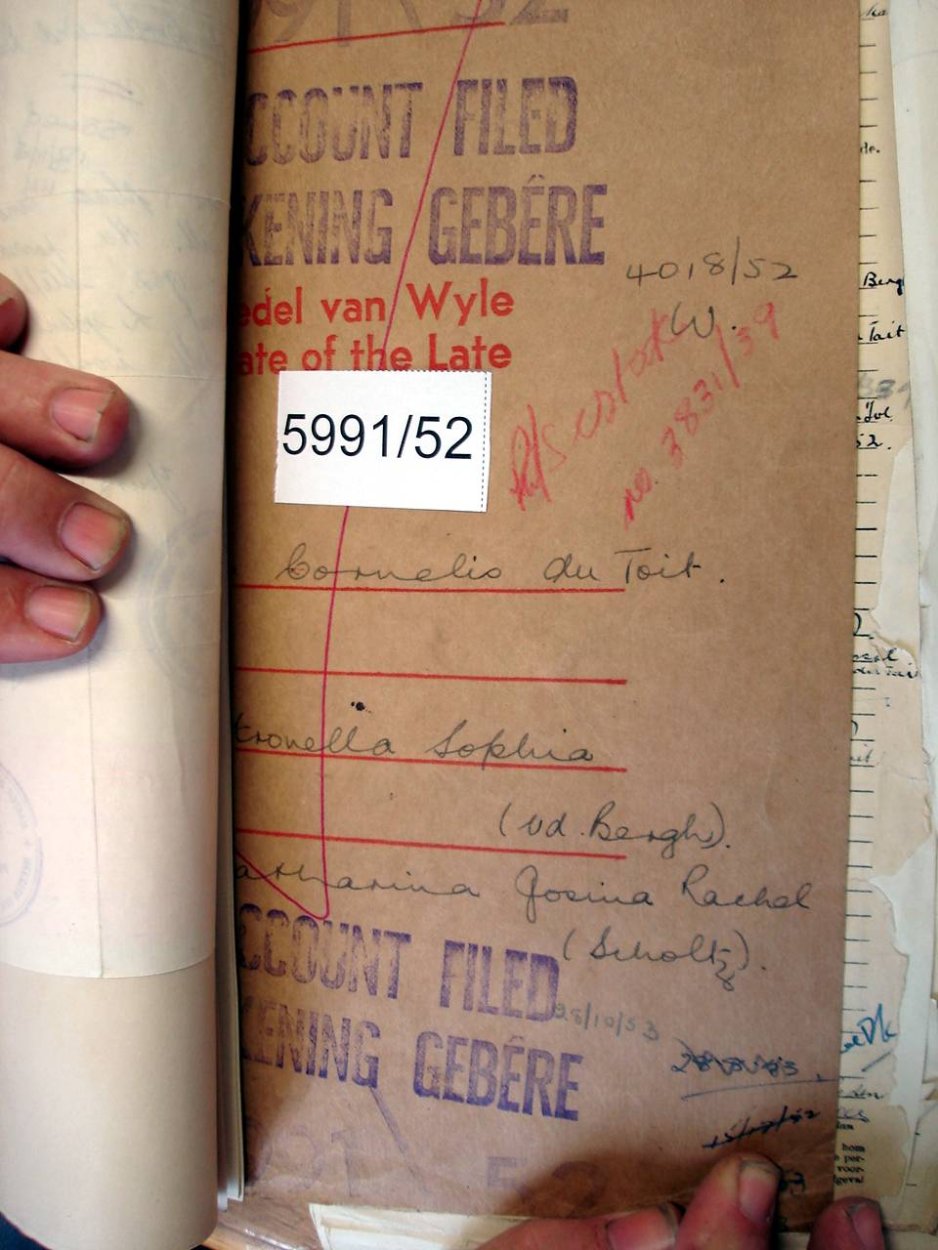 91/52
CCOUNT FILED
KENING GEBÊRE
4018/52
edel van Wyle
W.
ate of the Late
no. 3831/39
5991/52
Cornelis du Toit.
tronella Sophia
(vd. Bergh).
atharina Josina Rachel
(Scholtz).
CCOUNT FILED
28/10/53
ENING GEBÊRE